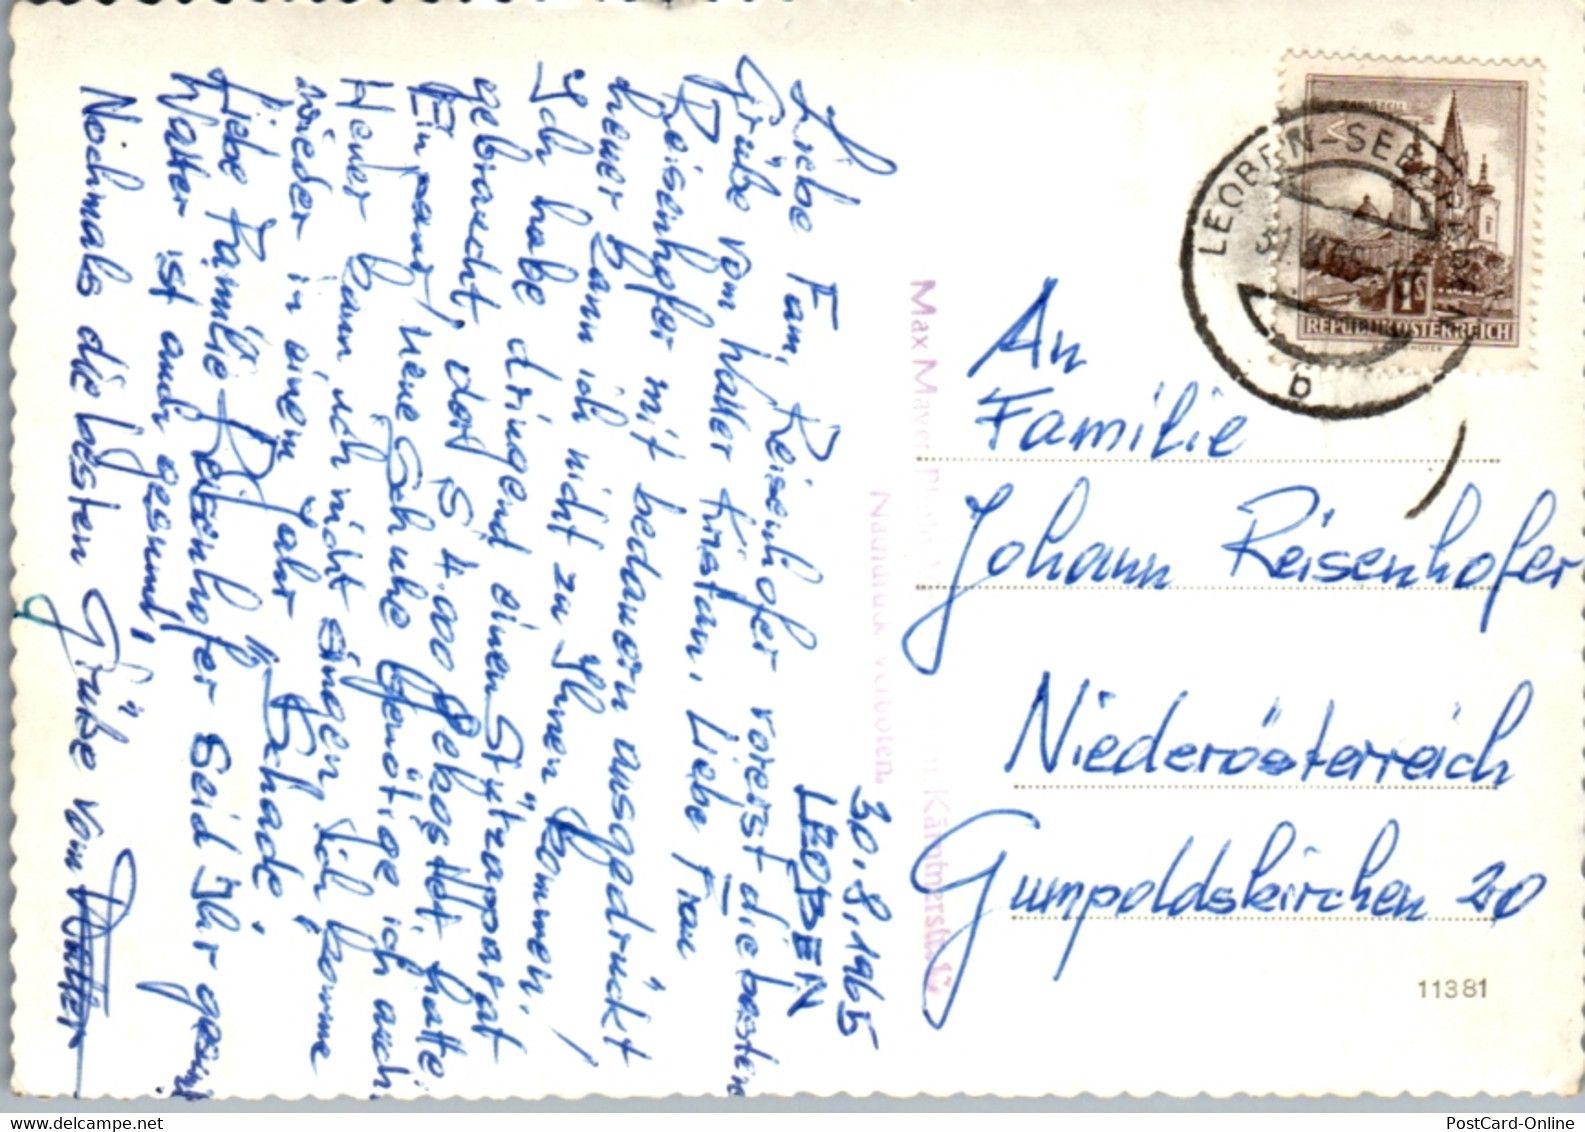 30.8.1965
LEOBEN
Liebe Fam. Reisenhofer vorerst die besten
Grüße vom Walter Kristan. Liebe Frau
Reisenhofer mit bedauern ausgedrückt
heuer kann ich nicht zu Ihnen kommen!
Ich habe dringend einen Stützapparat
gebraucht, dar S 4.000 gekostet hatte.
Ein paar neue Schuhe benötige ich auch.
Heuer kann ich nicht singen. Ich komme
wieder in einem Jahr! Schade.
Liebe Familie Reisenhofer seid Ihr gesund
Walter ist auch gesund,
Nochmals die besten Grüße vom Walter
An
Familie
Johann Reisenhofer
Niederösterreich
Gumpoldskirchen 20
11381
LEOBEN-SEEGRABEN
b
REPUBLIK ÖSTERREICH
1 S
Max Mayer
Nachdruck verboten.
Kärntnerstr. 17
PostCard-Online